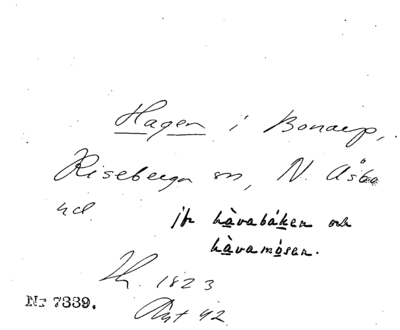 Hagen i Bonarp,
Riseberga sn, N. Åsbo
hd.
jfr hàvabáken och
hàvamósen.
Th. 1823
Nr 7339.